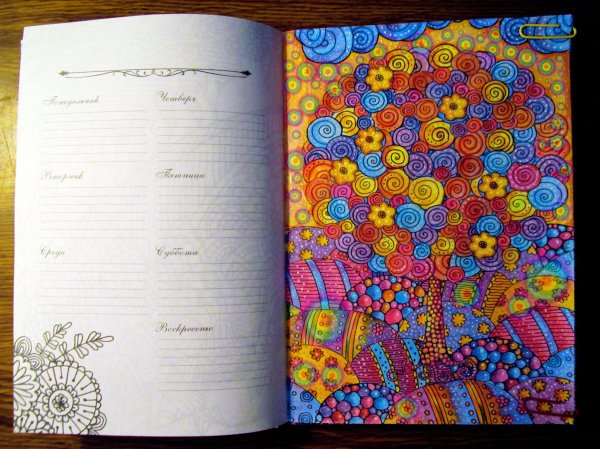 Понедельник
Вторник
Среда
Четверг
Пятница
Суббота
Воскресенье